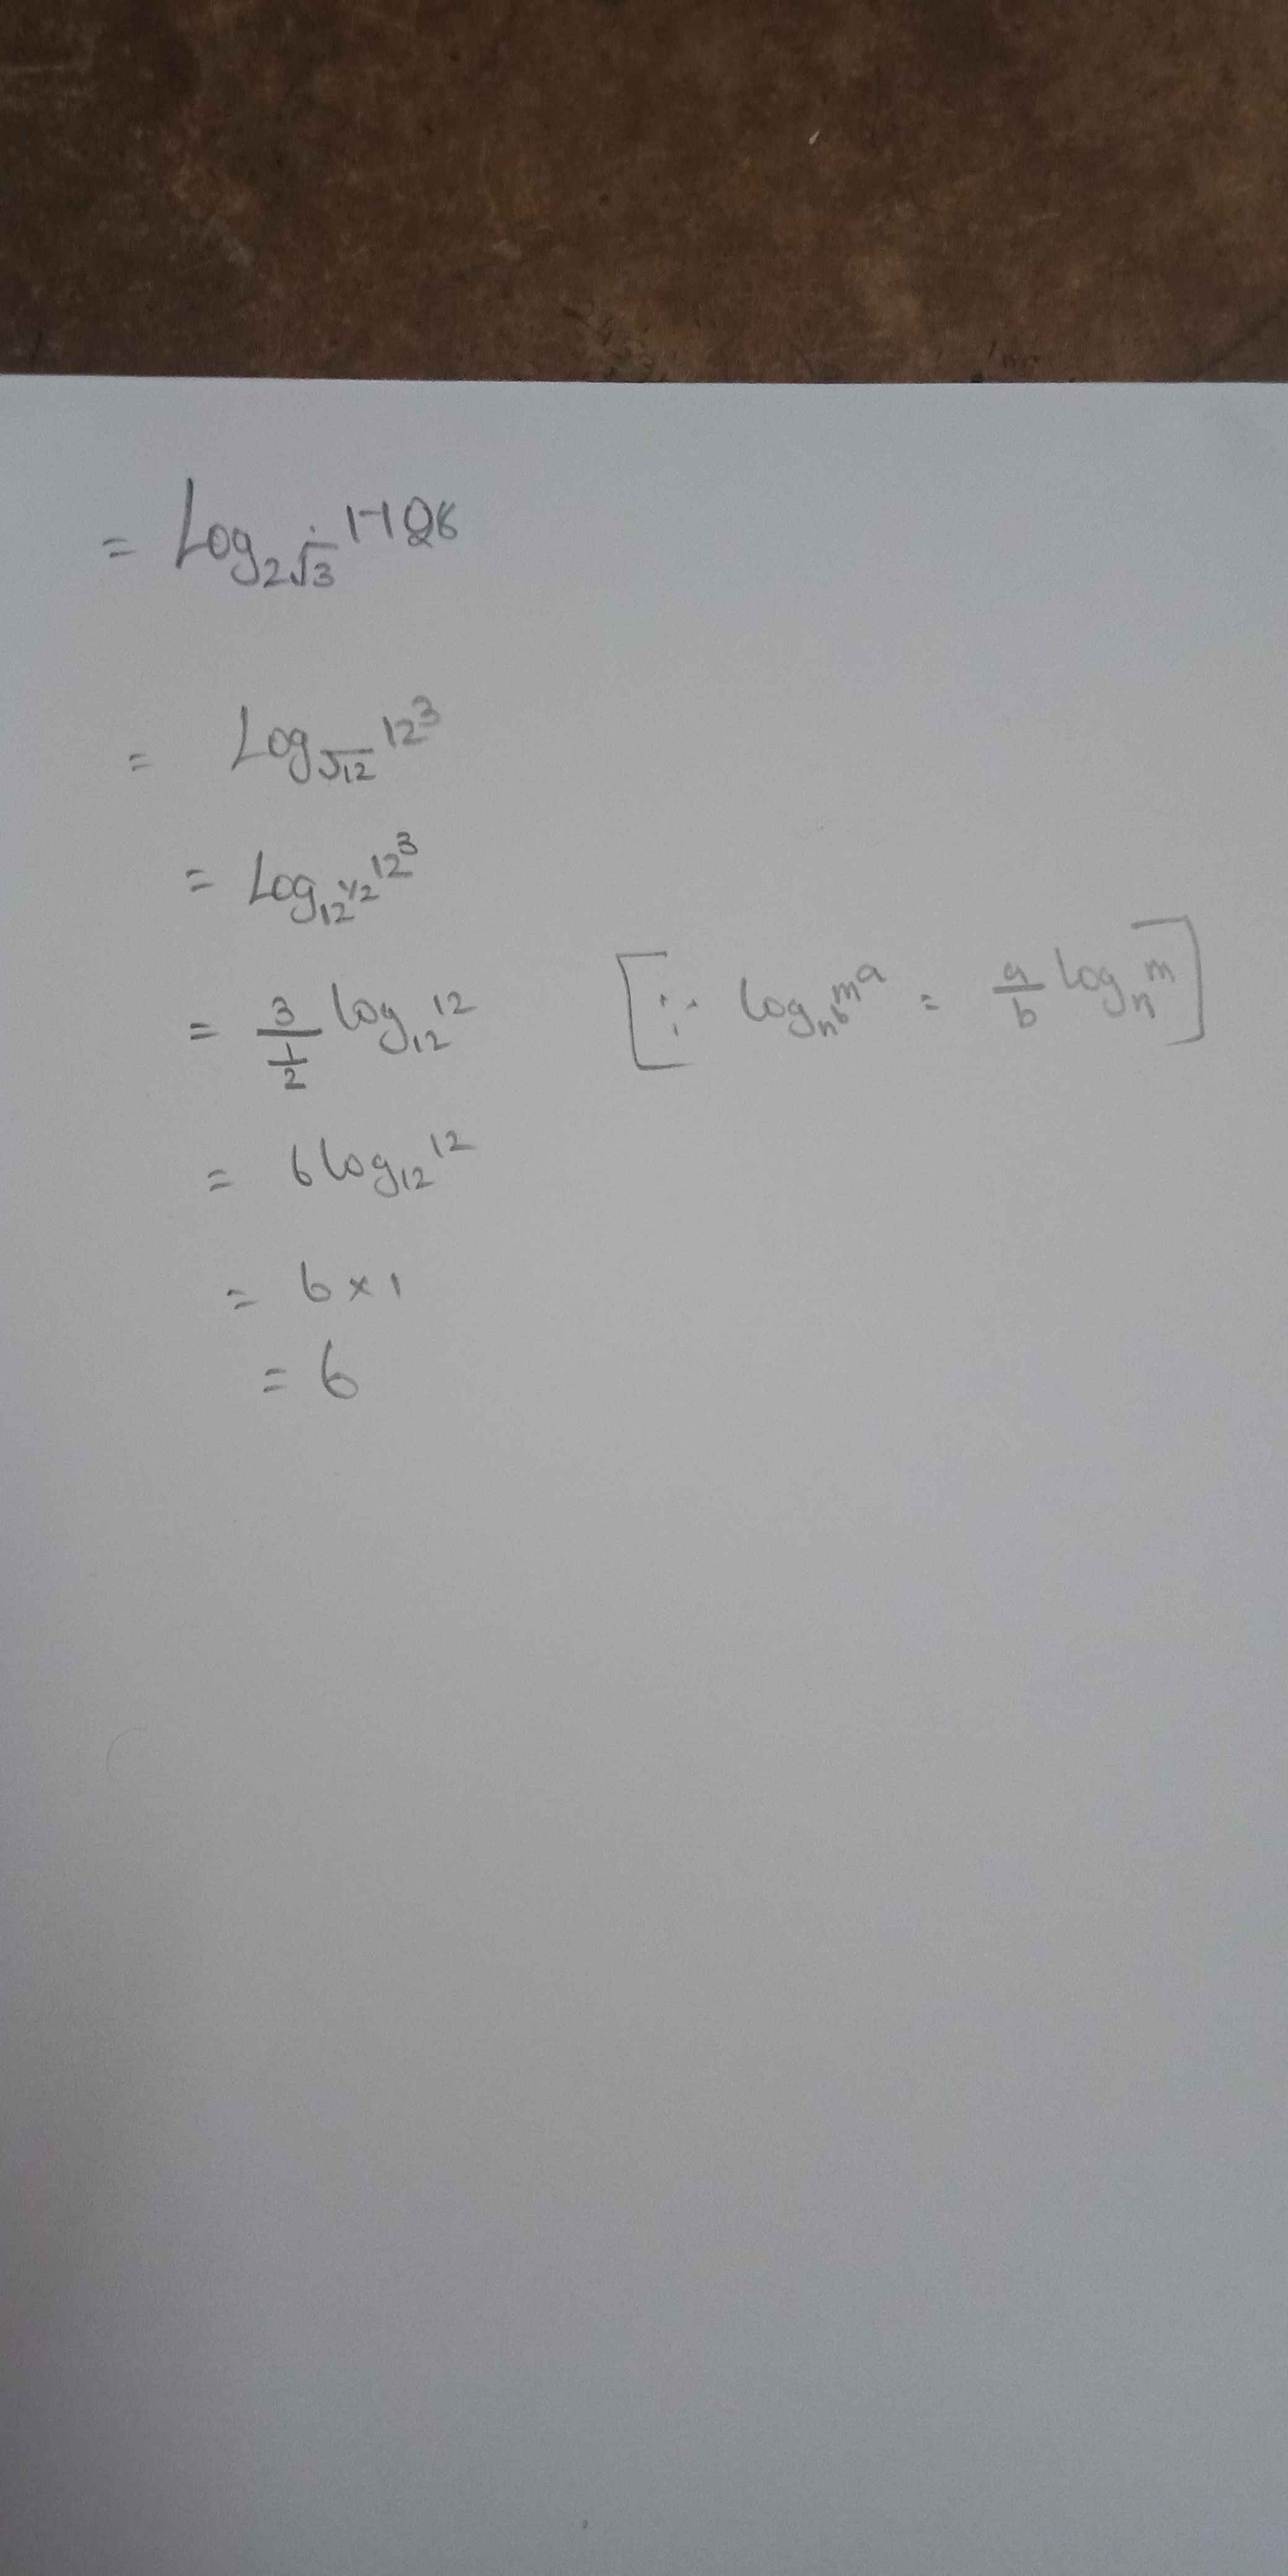 = Log₂√₃ 1728
= Log√₁₂ 12³
= Log₁₂^½ 12³
= 3/(1/2) log₁₂ 12 [∵ log_n^b m^a = a/b log_n m]
= 6 log₁₂ 12
= 6 × 1
= 6